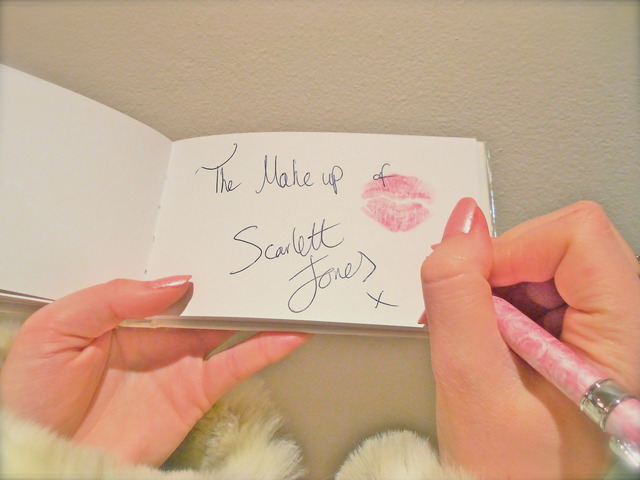 The Make up of
Scarlett
Jones
x